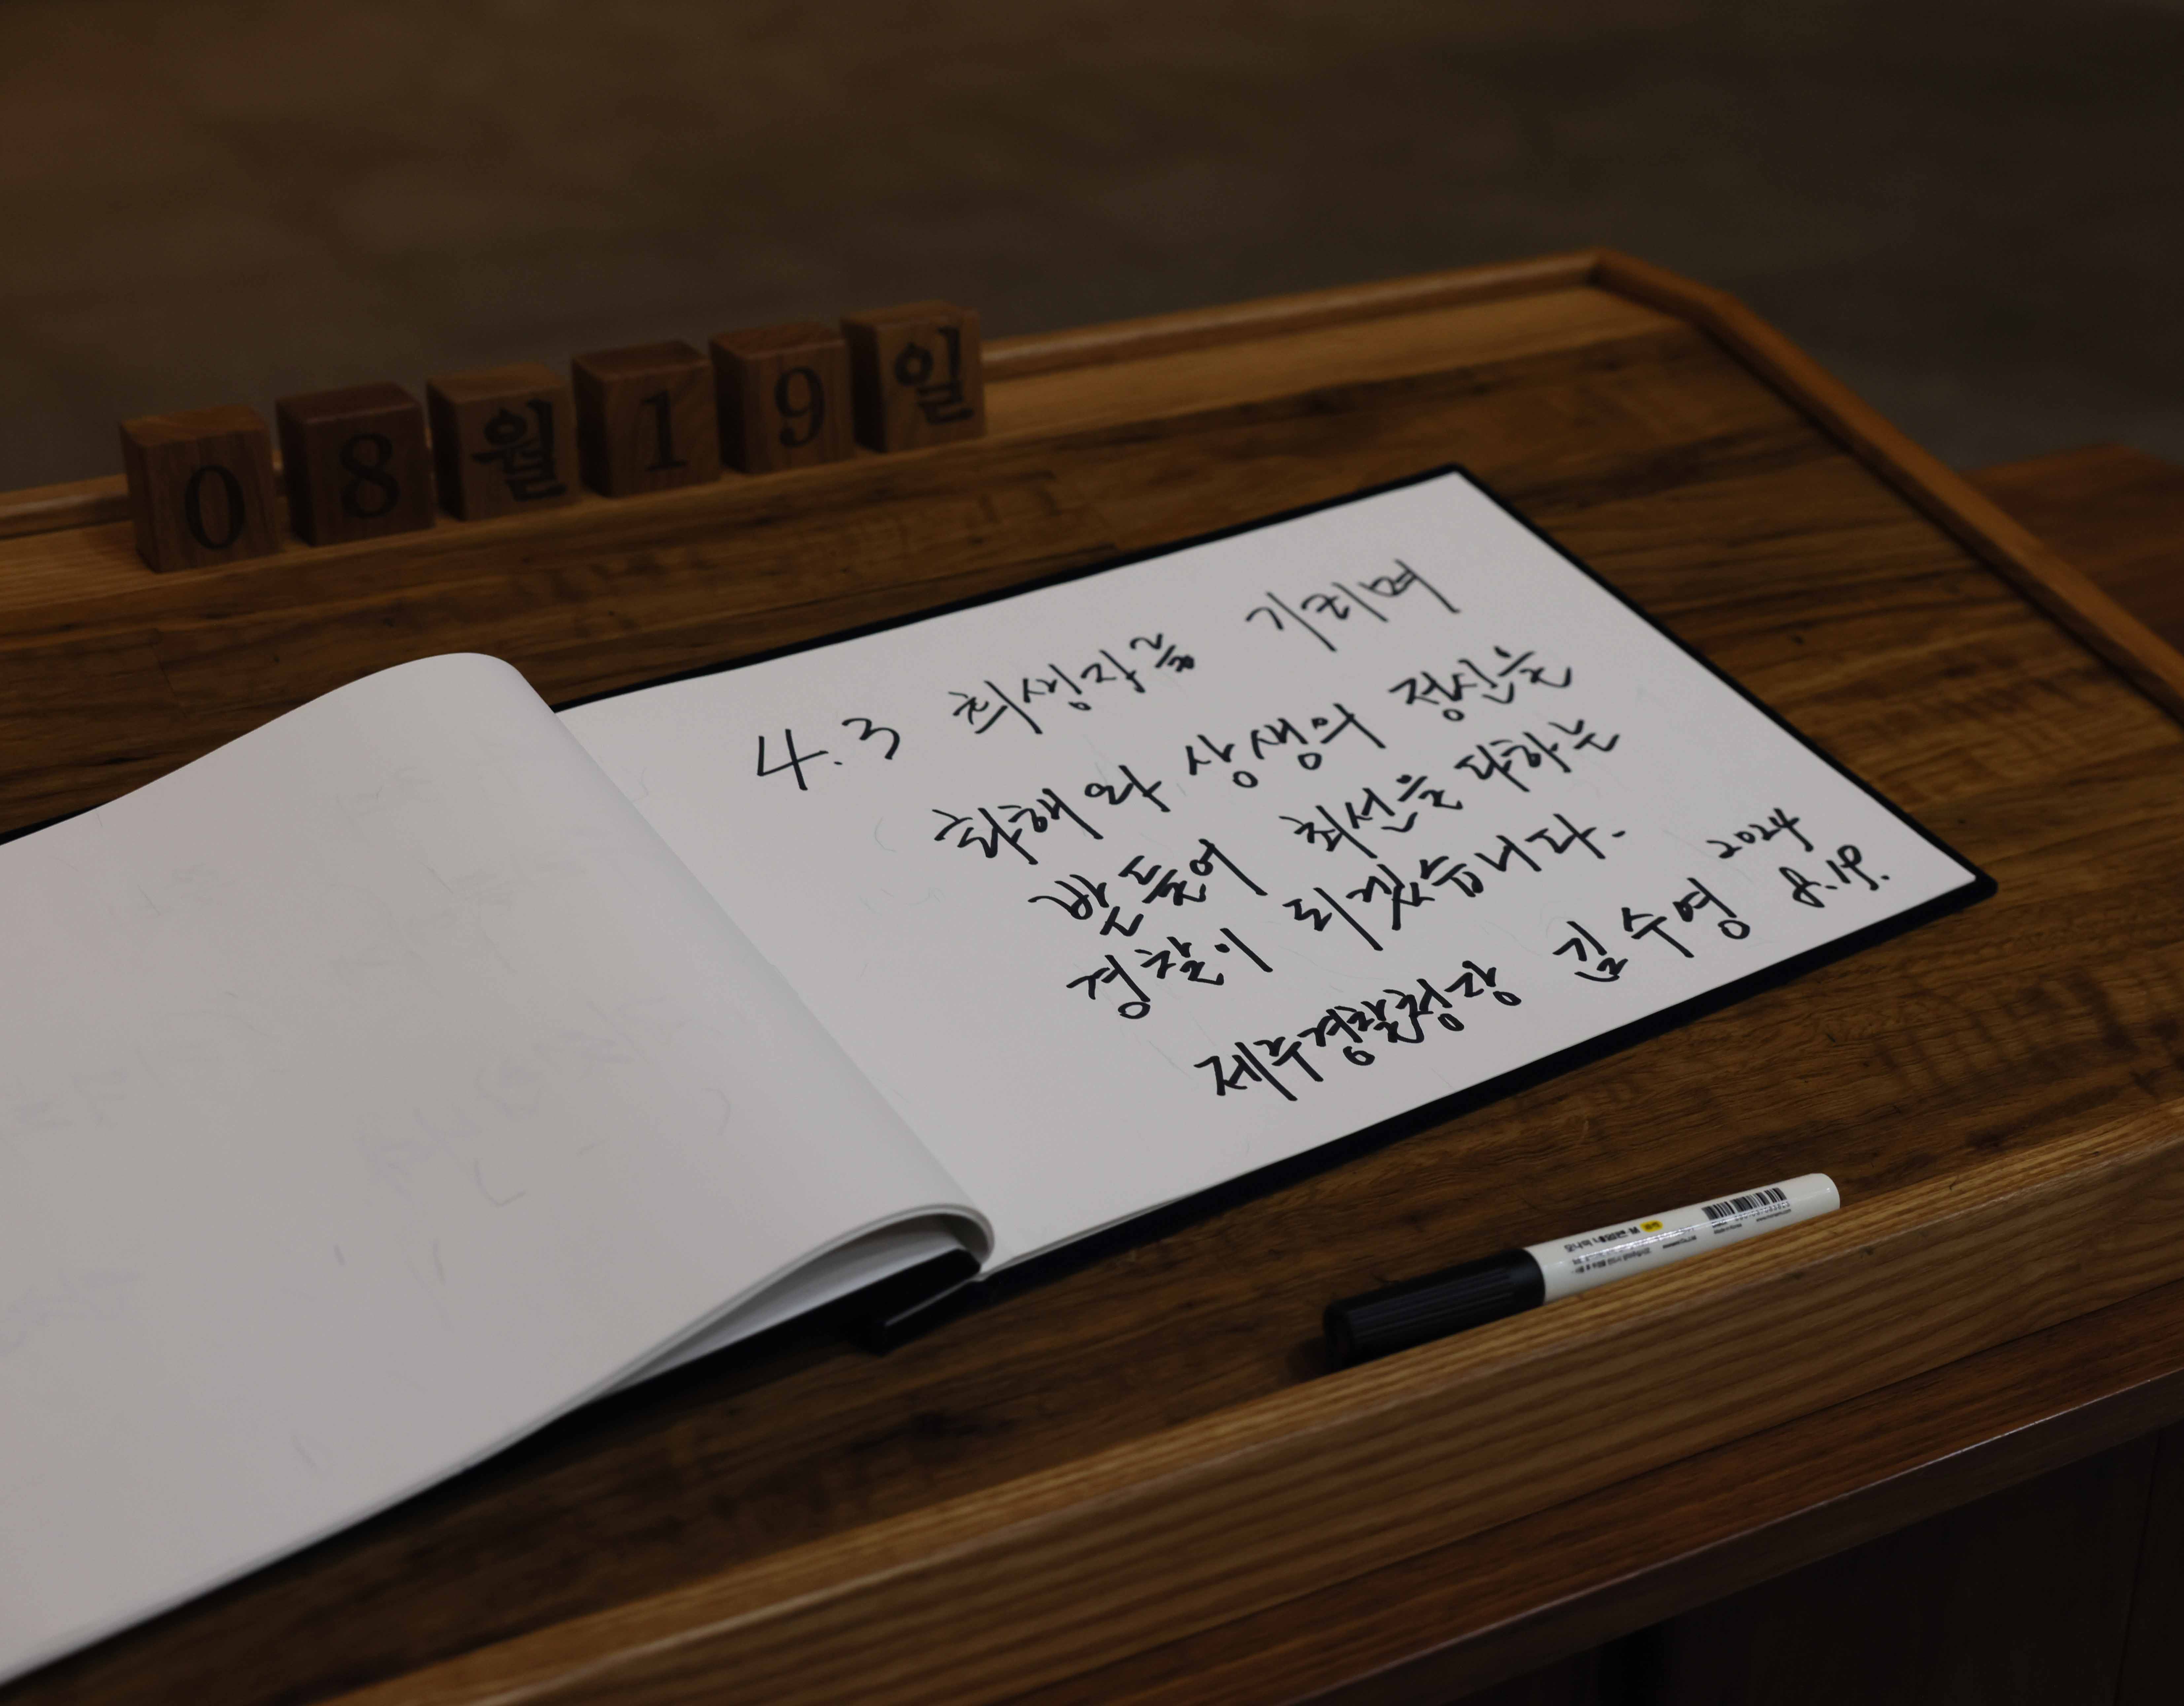 08월19일
4.3 희생자를 기리며
화해와 상생의 정신을
받들어 최선을 다하는
경찰이 되겠습니다.
제주경찰청장 김수영 2024
8.19.